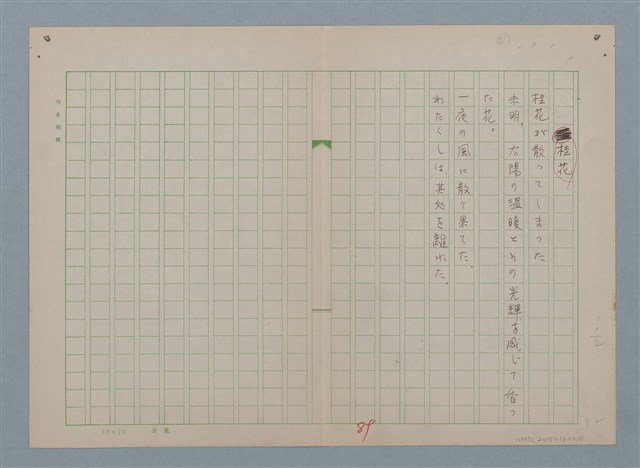 桂花
桂花が散ってしまった
未明、太陽の温暖とその光輝を感じて香っ
た花。
一夜の風に散り果てた。
わたくしは、其処を離れた。
89